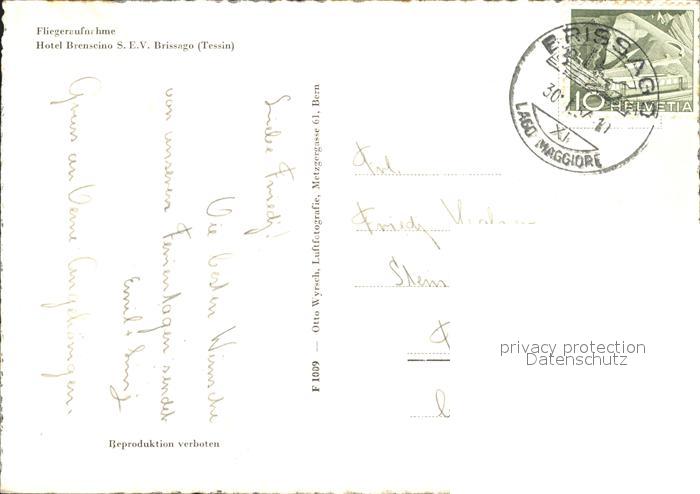 Fliegeraufnahme
Hotel Brenscino S. E. V. Brissago (Tessin)
BRISSAGO
30.
XI
LAGO MAGGIORE
10 HELVETIA
Liebe Friedj!
Die besten Wünsche
von unseren Ferientagen sendet
Emil +
Gruss an Deine Angehörigen.
F 1009 — Otto Wyrsch, Luftfotografie, Metzgergasse 61, Bern
Frl.
Friedj
privacy protection
Datenschutz
Reproduktion verboten